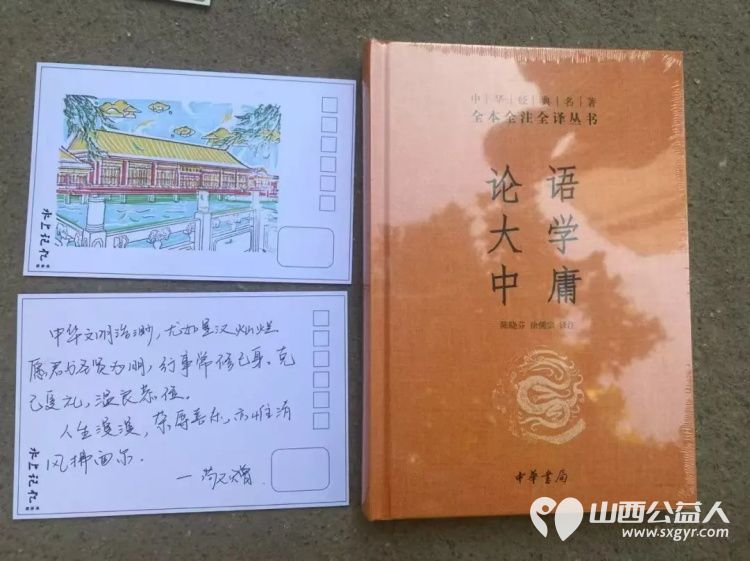 水上记忆
中华文明浩渺，尤如星汉灿烂
愿君与圣贤为朋，行事常修己身、克
己复礼，温良恭俭。
人生漫漫，杂辱喜乐，亦惟清
风拂面尔．
水上记忆
中华经典名著
全本全注全译丛书
论语
大学
中庸
陈晓芬 徐儒宗 译注
中华书局
山西公益人
www.sxgyr.com